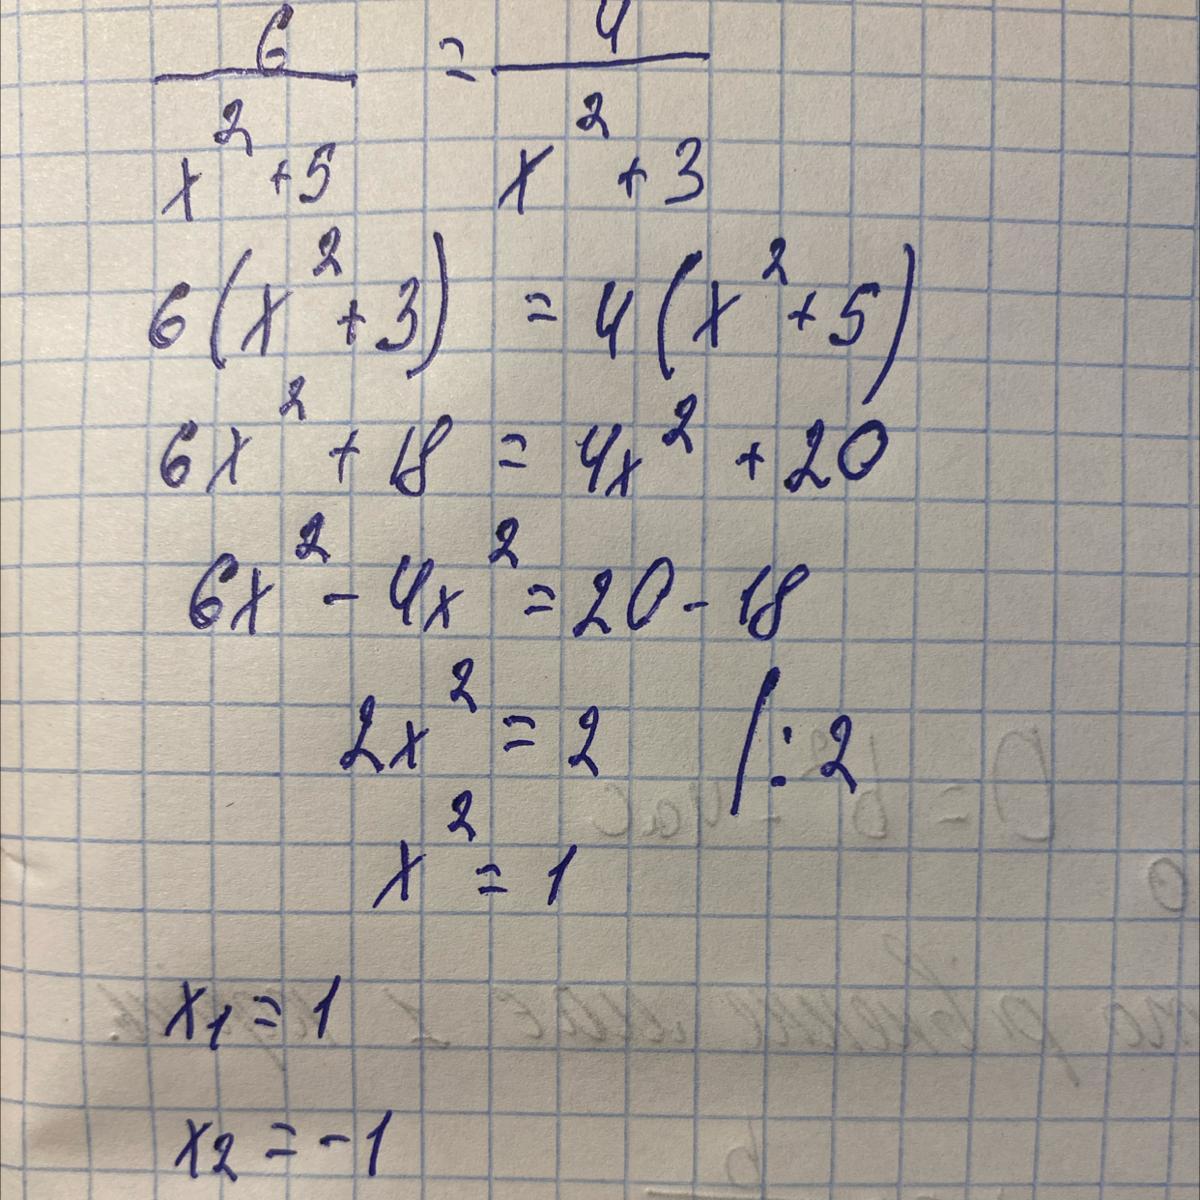 6/(x²+5) = 4/(x²+3)
6(x²+3) = 4(x²+5)
6x² + 18 = 4x² + 20
6x² - 4x² = 20 - 18
2x² = 2 /:2
x² = 1
x1 = 1
x2 = -1